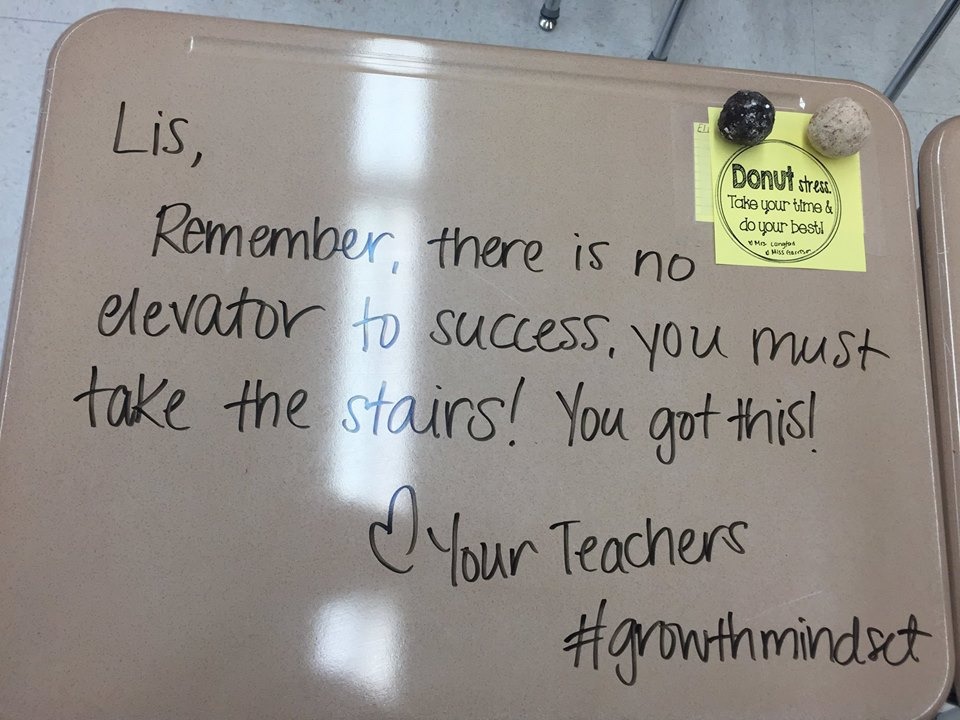 Lis,
Remember, there is no
elevator to success, you must
take the stairs! You got this!
♡ Your Teachers
#growthmindset
Donut stress.
Take your time &
do your best!
Mrs. Langford
Miss